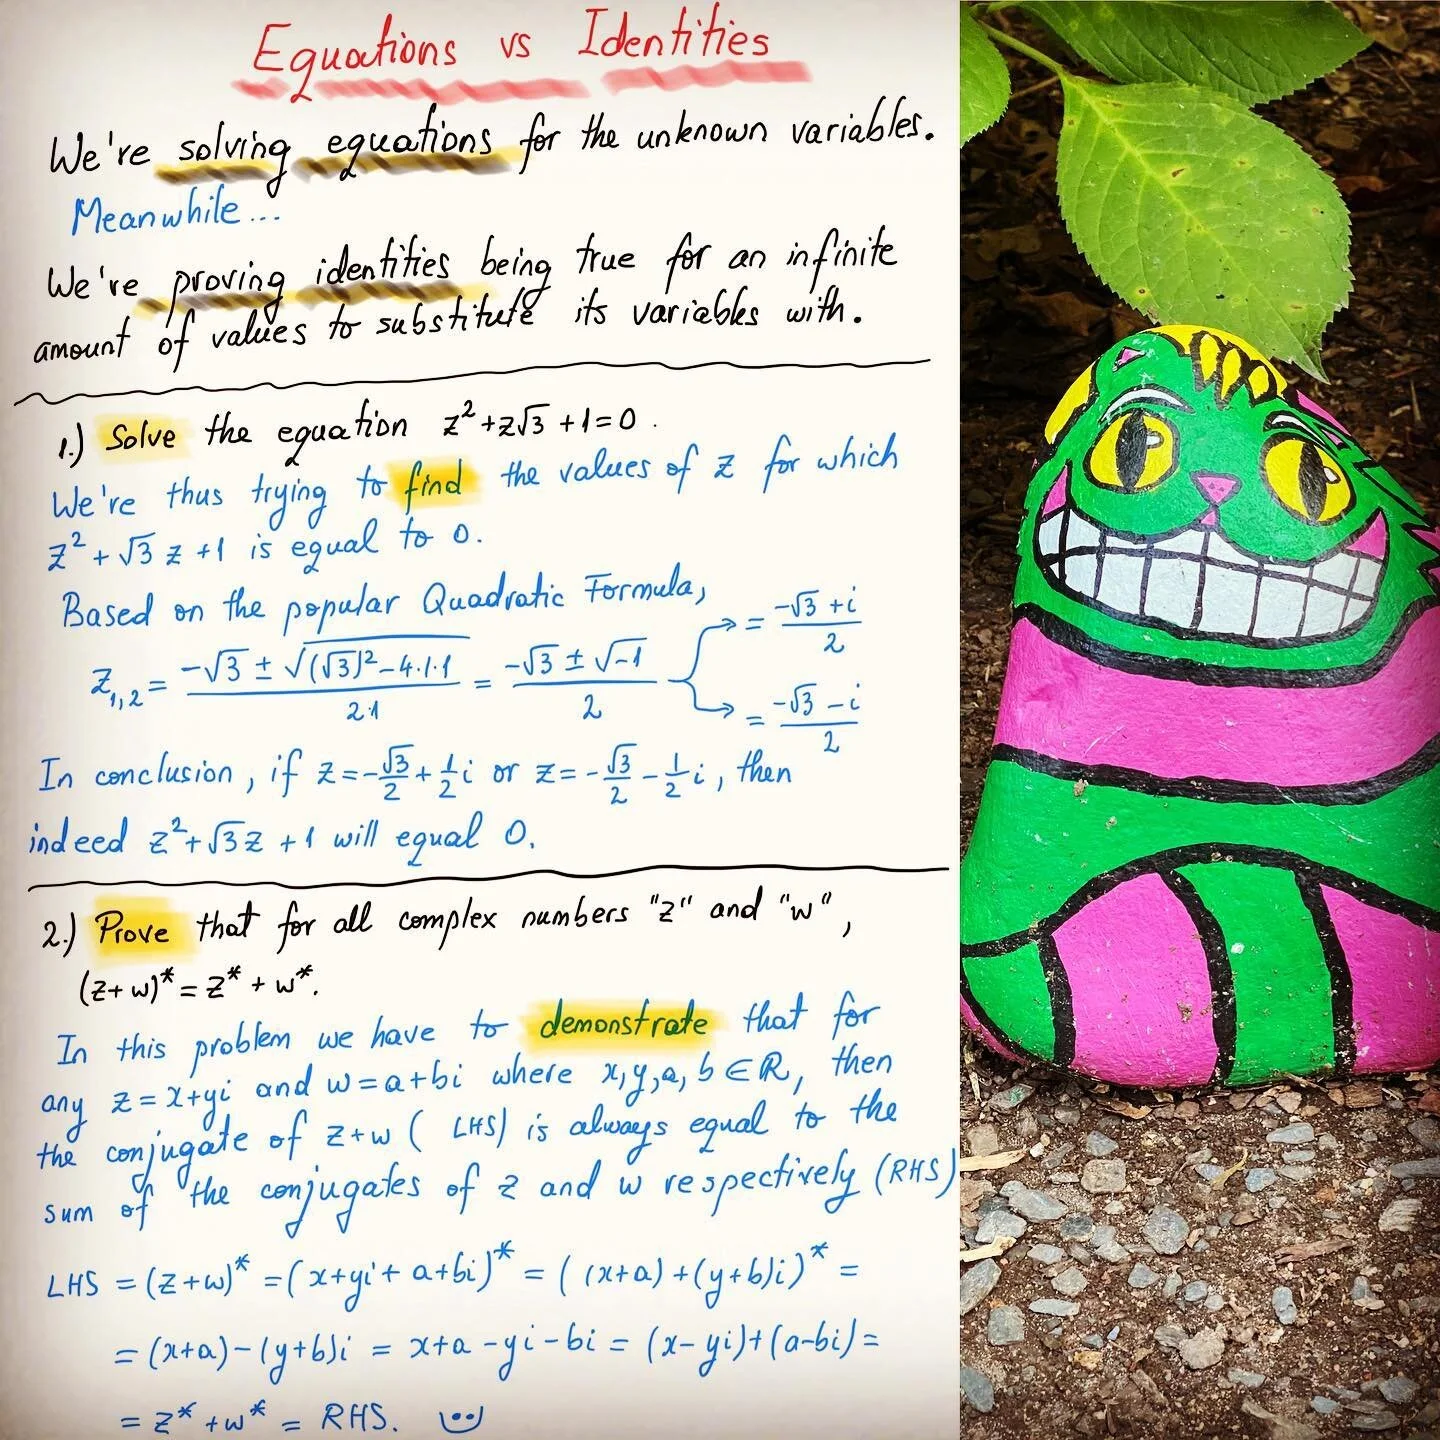 Equations vs Identities
We're solving equations for the unknown variables.
Meanwhile...
We're proving identities being true for an infinite
amount of values to substitute its variables with.
1.) Solve the equation z²+z√3+1=0.
We're thus trying to find the values of z for which
z²+√3 z+1 is equal to 0.
Based on the popular Quadratic Formula,
z₁,₂ = (-√3 ± √((√3)²-4·1·1))/(2·1) = (-√3 ± √-1)/2 → = (-√3+i)/2
→ = (-√3-i)/2
In conclusion, if z=-√3/2+1/2i or z=-√3/2-1/2i, then
indeed z²+√3z+1 will equal 0.
2.) Prove that for all complex numbers "z" and "w",
(z+w)*=z*+w*.
In this problem we have to demonstrate that for
any z=x+yi and w=a+bi where x,y,a,b∈R, then
the conjugate of z+w (LHS) is always equal to the
sum of the conjugates of z and w respectively (RHS)
LHS = (z+w)* = (x+yi+a+bi)* = ((x+a)+(y+b)i)* =
= (x+a)-(y+b)i = x+a-yi-bi = (x-yi)+(a-bi) =
= z*+w* = RHS.